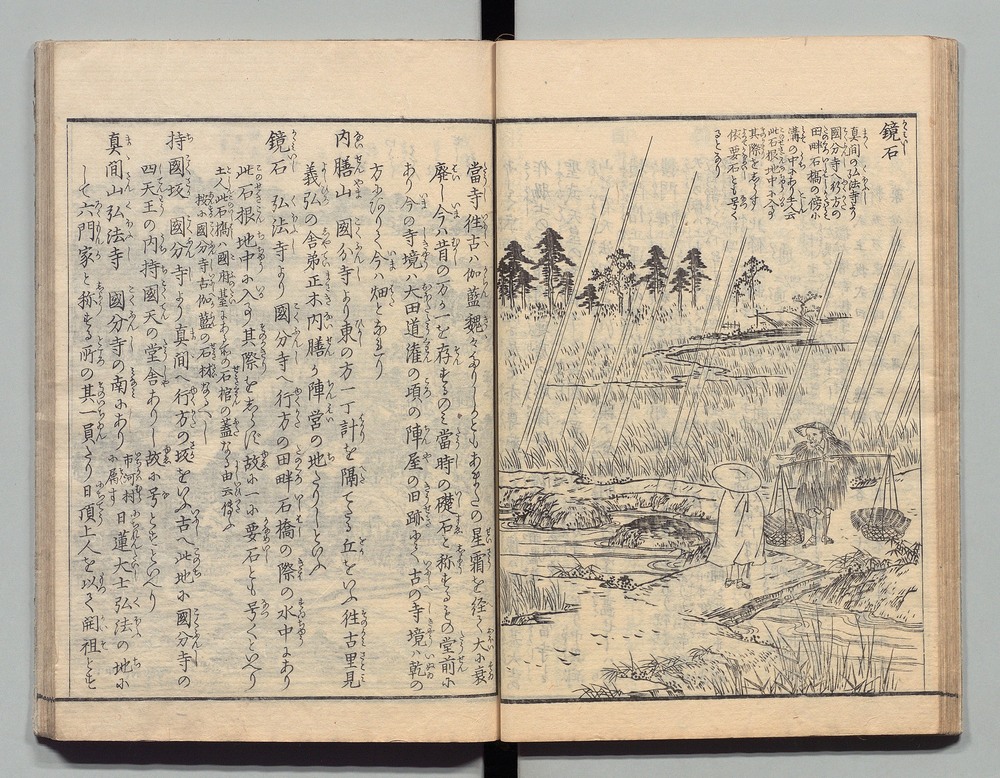 鏡石
真間の弘法寺より
國分寺へ行方の
田畔石橋の傍小
溝の中にあり土人云
此石根地中に入す
其際をしらす
依要石とも号く
さとあり
當寺往古ハ伽藍魏々たりしかともあまたの星霜を経て大に衰
廃し今ハ昔の万か一を存するのミ當時の礎石と称するもの堂前に
あり今の寺境ハ大田道潅の頃の陣屋の旧跡ゆへ古の寺境ハ乾の
方にありて今ハ畑となれり
内膳山 國分寺より東の方一丁計を隔てたる丘をいふ往古里見
義弘の舎弟正木内膳か陣営の地なりしといふ
鏡石 弘法寺より國分寺へ行方の田畔石橋の際の水中にあり
此石根地中に入て其際をしらす故に一に要石とも号くといへり
土人此石橋ハ國府臺にある所の石棺の蓋なる由云傳ふ
按に國分寺古伽藍の石材ならんへし
持國坂 國分寺より真間へ行方の坂をいふ古へ此地に國分寺の
四天王の内持國天の堂舎ありし故に号とすといへり
真間山弘法寺 國分寺の南にあり 市河村に属す 日蓮大士弘法の地に
して六門家と称する所の其一員たり日頂上人を以て開祖とす